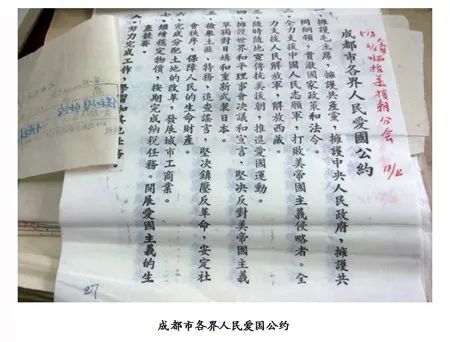 成都市各界人民愛國公約
擁護毛主席,擁護共產黨,擁護中央人民政府,擁護共
同綱領,貫徹國家政策和法令。
全力支援中國人民志願軍,打敗美帝國主義侵略者。全
力支援人民解放軍,解放西藏。
隨時隨地宣傳抗美援朝,推進愛國運動。
擁護世界和平理事會決議和宣言,堅決反對美帝國主義
單獨對日媾和重新武裝日本。
檢舉土匪、特務,追查謠言,堅決鎮壓反革命,安定社
會秩序,保障人民的生命財產。
完成分配土地的改革,發展城市工商業。
繼續穩定物價,按期完成納稅任務。開展愛國主義的生
產競賽。
努力完成工作、學習和其他任務。
抗美援朝分会
27
成都市各界人民爱国公约